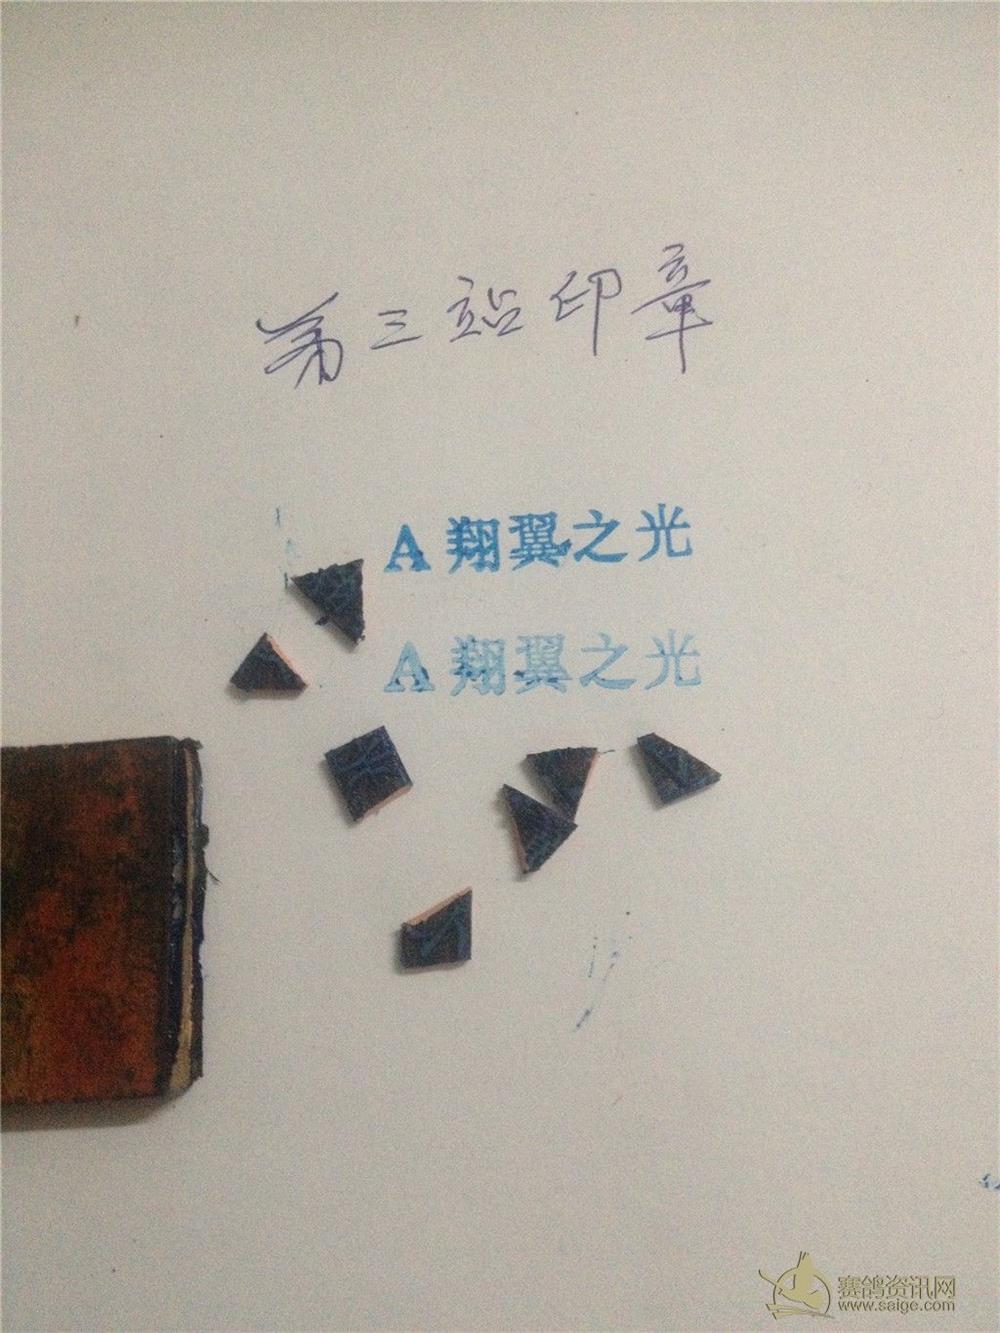 第三站印章
A翔翼之光
A翔翼之光
赛鸽资讯网
www.saige.com